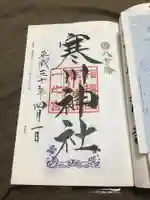 八方除
寒川神社
平成三十年四月一日